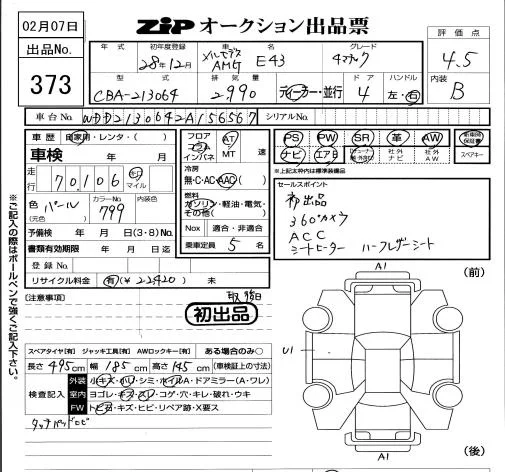 02月07日
ZIP オークション出品票
出品No.
373
評価点
4.5
内装
B
年式 初年度登録 車名 グレード
28年12月 メルセデス AMG E43 4マチック
型式 排気量 ドア ハンドル
CBA-213064 2990 ディーラー・並行 4 左・右
車台No. WDD2130642A156567 シリアルNo.
車歴 自家用・レンタ・( )
車検 年 月
走行 70,106 キロ マイル
色 (元色) パール カラーNo. 799 内装色
予備検 年 月 日(3・8)No.
書類有効期限 年 月 日迄
登録No.
リサイクル料金 有(¥22420) 未
フロア コラム インパネ AT MT 速
冷房 無・C・AC・AAC( )
燃料 ガソリン・軽油・電気・その他( )
Nox 適合・非適合
乗車定員 5 名
PS PW SR 革 AW 新車時保証書
ナビ エアB 社外ナビ 社外AW スペアキー
※上記太枠内は標準装備品
セールスポイント
初出品
360°カメラ
ACC
シートヒーター ハーフレザーシート
(注意事項)
初出品
スペアタイヤ[有] ジャッキ工具[有] AWロックキー[有] ある場合のみ○
長さ 495cm 幅 185cm 高さ 145cm (車検証上の寸法)
検査記入
外装 小キズ・小凹・シミ・ホイルA・ドアミラー(A・ワレ)
室内 ヨゴレ・キズ・スレ・コゲ・穴・キレ・破れ・ウキ
FW トビ石・キズ・ヒビ・リペア跡・X要ス
※ご記入の際はボールペンで強くご記入下さい。
A1
(前)
U1
A1
(後)